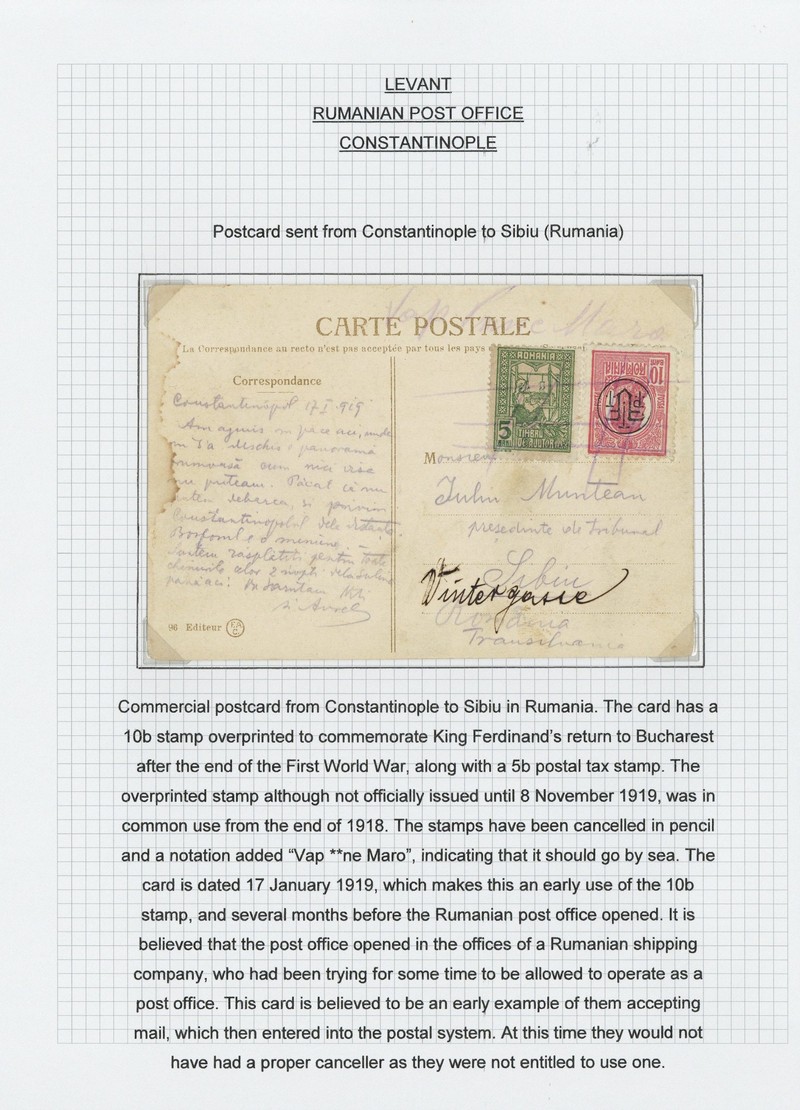 LEVANT
RUMANIAN POST OFFICE
CONSTANTINOPLE
Postcard sent from Constantinople to Sibiu (Rumania)
Vap
CARTE POSTALE
La Correspondance au recto n'est pas acceptée par tous les pays
Correspondance
Constantinopol 17 I 919
Am ajuns cu pace aci, unde
panorama
cum nici
nu puteam. Păcat că nu
debarca, și privim
Constantinopolul dela distanța
Bosforul e o minune.
răsplătiți pentru toate
celor 2 nopți dela Sulina
până aci.
și Aurel
96 Editeur
ROMANIA
5
TIMBRU DE AJUTOR
10
BANI
POSTA
ROMANIA
Monsieur
Iuliu Muntean
președinte de tribunal
Sibiu
Wintergasse
România
Transilvania
Commercial postcard from Constantinople to Sibiu in Rumania. The card has a
10b stamp overprinted to commemorate King Ferdinand's return to Bucharest
after the end of the First World War, along with a 5b postal tax stamp. The
overprinted stamp although not officially issued until 8 November 1919, was in
common use from the end of 1918. The stamps have been cancelled in pencil
and a notation added "Vap **ne Maro", indicating that it should go by sea. The
card is dated 17 January 1919, which makes this an early use of the 10b
stamp, and several months before the Rumanian post office opened. It is
believed that the post office opened in the offices of a Rumanian shipping
company, who had been trying for some time to be allowed to operate as a
post office. This card is believed to be an early example of them accepting
mail, which then entered into the postal system. At this time they would not
have had a proper canceller as they were not entitled to use one.